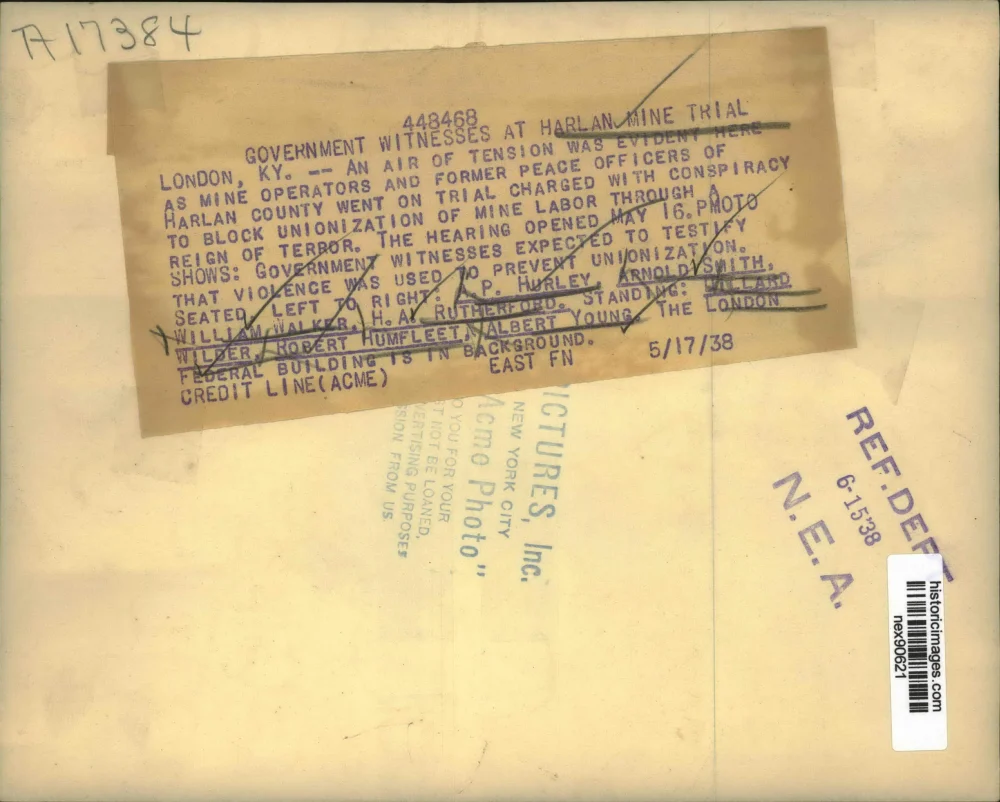 A17384
448468
GOVERNMENT WITNESSES AT HARLAN MINE TRIAL
LONDON, KY. -- AN AIR OF TENSION WAS EVIDENT HERE
AS MINE OPERATORS AND FORMER PEACE OFFICERS OF
HARLAN COUNTY WENT ON TRIAL CHARGED WITH CONSPIRACY
TO BLOCK UNIONIZATION OF MINE LABOR THROUGH A
REIGN OF TERROR. THE HEARING OPENED MAY 16. PHOTO
SHOWS: GOVERNMENT WITNESSES EXPECTED TO TESTIFY
THAT VIOLENCE WAS USED TO PREVENT UNIONIZATION.
SEATED, LEFT TO RIGHT: P. HURLEY, ARNOLD SMITH,
WILLIAM WALKER, H.A. RUTHERFORD. STANDING: WILLARD
WILDER, ROBERT HUMFLEET, ALBERT YOUNG. THE LONDON
FEDERAL BUILDING IS IN BACKGROUND.
CREDIT LINE(ACME) EAST FN 5/17/38
ICTURES, Inc.
NEW YORK CITY
Acme Photo"
O YOU FOR YOUR
T NOT BE LOANED,
VERTISING PURPOSES
SION FROM US
REF. DEPT
6-15'38
N.E.A.
historicimages.com
nex90621